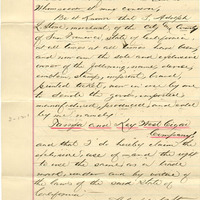 Whomsoever it may concern,
Be it Known that I, Adolph
merchant, of the City & County
of San Francisco, State of California,
at all times at times have been
and am now the sole and exclusive
owner of the following name, device,
emblem, stamp, imprint, brand,
printed ticket, now in use by
me to denote the goods imported
manufactured produced and sold
by me namely
Florida and Key West Cigar
Company,
and that I do hereby claim the
exclusive use of and the right
to use the same as a trade
mark under and by virtue of
the laws of the said State of
California.